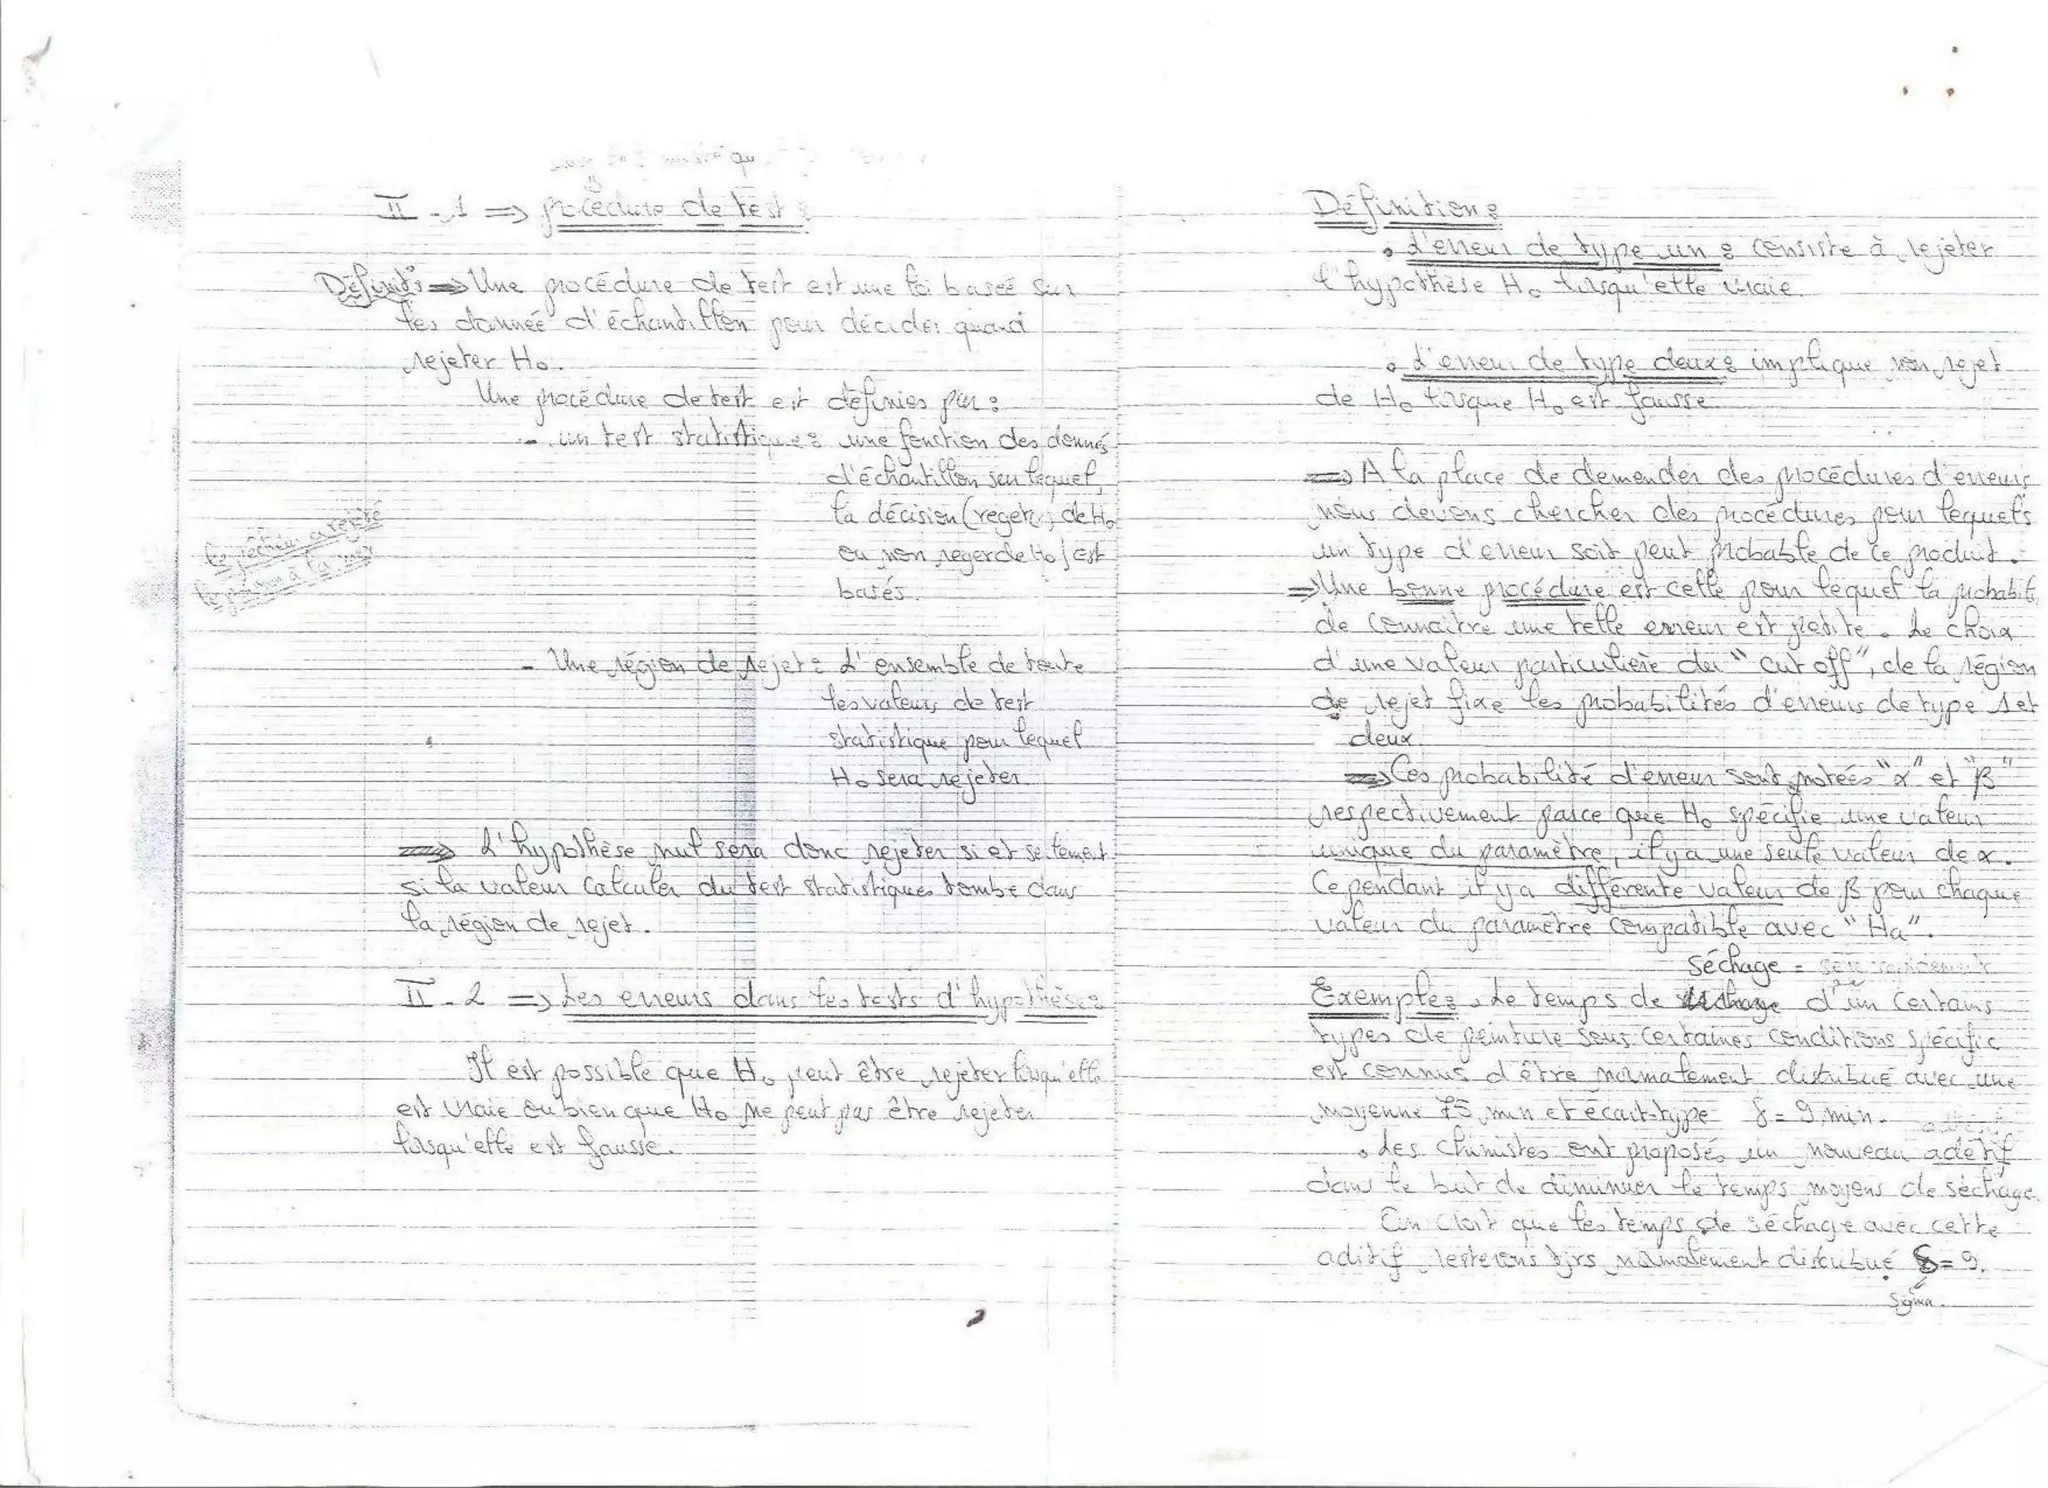 II - 1 => procédure de test :
Définit° => Une procédure de test est une loi baseé sur
les donneé d'échantillon pour décider quand
rejeter Ho.
Une procédure de test est définies par :
- un test statistiques : une fonction des donnés
d'échantillon sur lequel
la décision (regeter, de Ho
ou non regerde Ho) est
basés.
le pêcheur a rejeté
le poisson à la mer
- Une région de rejet : L'ensemble de toute
les valeurs de test
statistique pour lequel
Ho sera rejeter.
=> L'hypothèse nul sera donc rejeter si et seulement
si la valeur calculer du test statistiques tombe dans
la région de rejet.
II - 2 => Les erreurs dans les tests d'hypothèse :
Il est possible que Ho peut être rejeter lorsqu'elle
est vraie ou bien que Ho ne peut pas être rejeter
lorsqu'elle est fausse.
Définition :
• L'erreur de type un : consiste à rejeter
l'hypothèse Ho lorsqu'elle vraie.
• L'erreur de type deux : implique non rejet
de Ho lorsque Ho est fausse
=> A la place de demender des procédures d'erreurs
nous devons chercher des procédures pour lequels
un type d'erreur soit peut probable de ce produit.
=> Une bonne procédure est celle pour lequel la probabilité
de connaitre une telle erreur est petite. Le choix
d'une valeur particulière du "cut off", de la région
de rejet fixe les probabilités d'erreurs de type 1 et
deux.
=> Ces probabilité d'erreur sont notées "α" et "β"
respectivement parce que Ho spécifie une valeur
unique du paramètre, il y a une seule valeur de α.
Cependant il y a différente valeur de β pour chaque
valeur du paramètre compatible avec "Ha".
séchage =
Exemple : Le temps de d'un certains
types de peinture sous certaines conditions spécific
est connus d'être normalement distribué avec une
moyenne 75 min et écart-type δ = 9 min.
• Les chimistes ont proposés un nouveau adetif
dans le but de diminuer le temps moyens de séchage.
On croit que les temps de séchage avec cette
aditif resterons tjrs normalement distribué δ = 9.
Sigma.